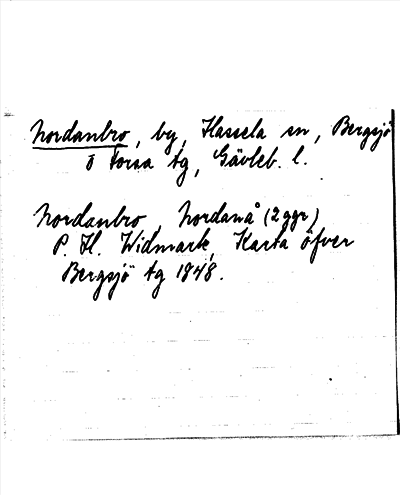 Nordanbro, by, Hassela sn, Bergsjö
o Forsa tg, Gävleb. l.
Nordanbro, Nordanå (2 ggr)
P. H. Widmark, Karta öfver
Bergsjö tg 1848.